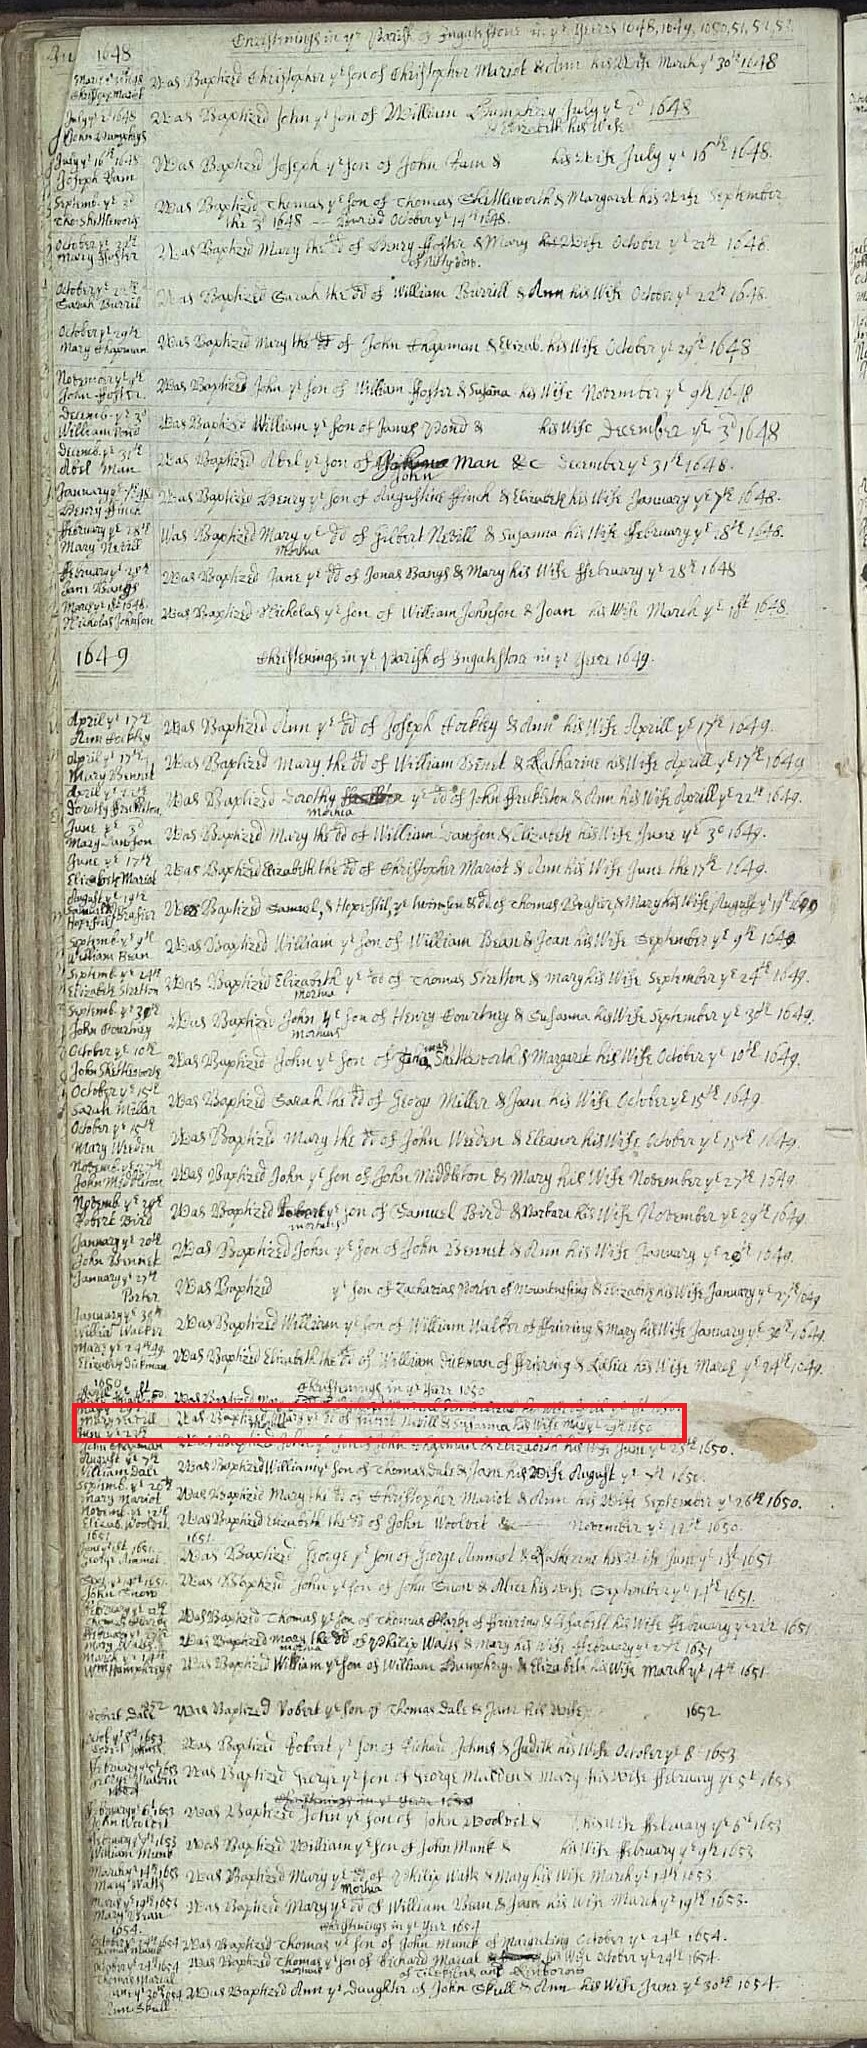 Christenings in ye Parish of Ingatestone in ye Years 1648, 1649, 1650, 51, 52, 53
1648
Christopher Mariot
Was Baptized Christopher ye son of Christopher Mariot & Ann his Wife March ye 30th 1648
July ye 2d 1648
John Humphrys
Was Baptized John ye son of William Humphry July ye 2d 1648
& Elizabeth his Wife
July ye 16th 1648
Was Baptized Joseph ye son of John & his Wife July ye 16th 1648.
Septemb. ye 3d
Tho: Shettleworth
Was Baptized Thomas ye son of Thomas Shettleworth & Margaret his Wife September
the 3d 1648 — Buried October ye 14th 1648.
October ye 22th
Mary ffoster
Was Baptized Mary the dd of Henry ffoster & Mary his Wife October ye 22th 1648
October ye 22th
Sarah Burril
Was Baptized Sarah the dd of William Burrill & Ann his Wife October ye 22th 1648.
October ye 29th
Mary Chapman
Was Baptized Mary the dd of John Chapman & Elizab. his Wife October ye 29th 1648
November ye 9th
John ffoster.
Was Baptized John ye son of William ffoster & Susana his Wife November ye 9th 1648
Decemb. ye 3d
William Pond
Was Baptized William ye son of James Pond & his Wife December ye 3d 1648
Decemb. ye 31th
Abel Man
Was Baptized Abel ye son of Man &c December ye 31th 1648.
John
January ye 7th 48
Henry ffinch
Was Baptized Henry ye son of Augustine ffinch & Elizabeth his Wife January ye 7th 1648.
ffebruary ye 18th
Mary Nevill
Was Baptized Mary ye dd of Gilbert Nevill & Susanna his Wife ffebruary ye 18th 1648.
Mortua
ffebruary ye 28th
Jane Bangs
Was Baptized Jane ye dd of Jonas Bangs & Mary his Wife ffebruary ye 28th 1648
March ye 18th 1648.
Nicholas Johnson
Was Baptized Nicholas ye son of William Johnson & Joan his Wife March ye 18t 1648.
1649
Christenings in ye Parish of Ingatestone in ye Year 1649.
April ye 17th
Ann Hockley
Was Baptized Ann ye dd of Joseph Hockley & Ann his Wife Aprill ye 17th 1649.
April ye 17th
Mary Bennet
Was Baptized Mary the dd of William Benet & Katharine his Wife Aprill ye 17th 1649
April ye 22th
Was Baptized Dorothy ye dd of John & Ann his Wife Aprill ye 22th 1649.
Mortua
June ye 3d
Mary Lawson
Was Baptized Mary the dd of William Lawson & Elizabeth his Wife June ye 3d 1649.
June ye 17th
Elizabeth Mariot
Was Baptized Elizabeth the dd of Christopher Mariot & Ann his Wife June the 17th 1649.
August ye 19th
Was Baptized Samuel, & Hope-still, ye twin son & dd of Thomas Brasier & Mary his Wife August ye 19th 1649
Septemb. ye 9th
William Bean
Was Baptized William ye son of William Bean & Joan his Wife September ye 9th 1649
Septemb ye 24th
Elizabeth Stretton
Was Baptized Elizabeth ye dd of Thomas Stretton & Mary his Wife September ye 24th 1649.
Mortua
Septemb. ye 30th
John Courtney
Was Baptized John ye son of Henry Courtney & Susanna his Wife September ye 30th 1649.
Mortuus
October ye 10th
John Shettleworth
Was Baptized John ye son of Shettleworth & Margaret his Wife October ye 10th 1649.
October ye 15th
Sarah Miller
Was Baptized Sarah the dd of George Miller & Joan his Wife October ye 15th 1649
October ye 15th
Mary Weeden
Was Baptized Mary the dd of John Weeden & Eleanor his Wife October ye 15th 1649.
Novemb. ye 27th
John Middleton
Was Baptized John ye son of John Middleton & Mary his Wife November ye 27th 1649.
Novemb. ye 29th
Robert Bird
Was Baptized Robert ye son of Samuel Bird & Barbara his Wife November ye 29th 1649.
January ye 20th
John Bennet
Was Baptized John ye son of John Bennet & Ann his Wife January ye 20th 1649.
January ye 27th
Porter
Was Baptized ye son of Zacharias Porter of Mountnesing & Elizabeth his Wife January ye 27th 1649
January ye 30th
William Walker
Was Baptized William ye son of William Walker of ffriering & Mary his Wife January ye 30th 1649.
March ye 24th 49
Elizabeth Dickman
Was Baptized Elizabeth the dd of William Dickman of ffriering & his Wife March ye 24th 1649
1650
Christenings in ye Year 1650
Was Baptized Mary
Mary Nevill
Was Baptized Mary ye dd of Nevill & Susanna his Wife May ye 1650
June ye 25th
John Chapman
Was Baptized John ye son of John Chapman & Elizabeth his Wife June ye 25th 1650.
August ye 7th
William Dale
Was Baptized William ye son of Thomas Dale & Jane his Wife August ye 7th 1650.
Septemb. ye 26th
Mary Mariot
Was Baptized Mary the dd of Christopher Mariot & Ann his Wife September ye 26th 1650.
Novemb. ye 12th
Elizab. Woolvet
Was Baptized Elizabeth the dd of John Woolvet & November ye 12th 1650.
1651
1651
June ye 1st 1651.
George Ammot
Was Baptized George ye son of George Ammot & Katherine his Wife June ye 1st 1651
John Snow
Was Baptized John ye son of John Snow & Alice his Wife September ye 14th 1651.
ffebruary ye 22th
Was Baptized Thomas ye son of Thomas of ffriering & Isabell his Wife ffebruary ye 22th 1651
Mary Watts
Was Baptized Mary the dd of Philip Watts & Mary his Wife ffebruary ye 27th 1651
Mortua
March ye 14th
Wm Humphreys
Was Baptized William ye son of William Humphry & Elizabeth his Wife March ye 14th 1651.
1652
Robert Dale
Was Baptized Robert ye son of Thomas Dale & Jane his Wife 1652
Octob. ye 8th 1653
Robert Johnes
Was Baptized Robert ye son of Richard Johnes & Judith his Wife October ye 8th 1653
ffebruary ye 5th 1653
Was Baptized George ye son of George Madden & Mary his Wife ffebruary ye 5th 1653
ffebruary ye 6th 1653
John Woolvet
Was Baptized John ye son of John Woolvet & his Wife ffebruary ye 6th 1653
ffebruary ye 9th 1653
William Munk
Was Baptized William ye son of John Munk & his Wife ffebruary ye 9th 1653
March ye 14th 1653
Mary Watts
Was Baptized Mary ye dd of Philip Watts & Mary his Wife March ye 14th 1653
Mortua
March ye 19th 1653
Mary Bean
Was Baptized Mary ye dd of William Bean & Joan his Wife March ye 19th 1653.
1654
Christnings in ye Year 1654
October ye 24th 1654
Thomas Munck
Was Baptized Thomas ye son of John Munck of Margretting October ye 24th 1654.
October ye 24th 1654
Thomas Marial
Was Baptized Thomas ye son of Richard Marial his Wife October ye 24th 1654
June ye 30th 1654
Ann Skull
Was Baptized Ann ye Daughter of John Skull & Ann his Wife June ye 30th 1654.